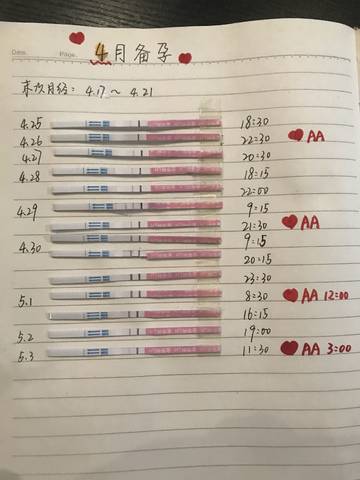 Date. Page.
4月备孕
末次月经: 4.17～ 4.21
4.25 18:30
4.26 22:30 AA
4.27 20:30
4.28 18:15
22:00
4.29 9:15
21:30 AA
4.30 9:15
20:15
23:30
5.1 8:30 AA 12:00
16:15
5.2 19:00
5.3 11:30 AA 3:00